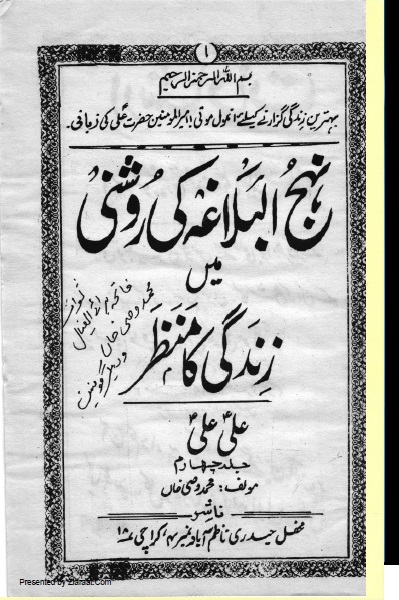 ۱
بسم اللہ الرحمن الرحیم
بہترین زندگی گزارنے کیلئے انمول موتی؛ امیرالمومنین حضرت علیؑ کی زبانی۔
نہج البلاغہ کی روشنی
میں
زندگی کا منظر
علیؑ علیؑ
جلد چہارم
مولف: محمد وصی خاں
ناشر
محفل حیدری ناظم آباد نمبر ۴، کراچی ۱۸
محمد وصی خاں
Presented by Ziaraat.Com